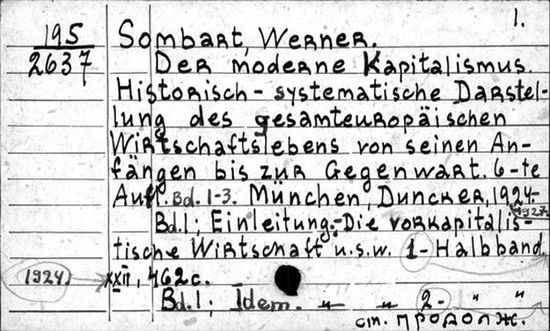 1.
195
2637
Sombart, Werner.
Der moderne Kapitalismus.
Historisch-systematische Darstel-
lung des gesamteuropäischen
Wirtschaftslebens von seinen An-
fängen bis zur Gegenwart. 6-te
Aufl. Bd. 1-3. München, Duncker, 1924-
1927.
Bd. 1; Einleitung.-Die vorkapitalis-
tische Wirtschaft u.s.w. 1-Halbband.
1924. XXII, 462 с.
Bd. 1; Idem. " " 2- " "
см. продолж.